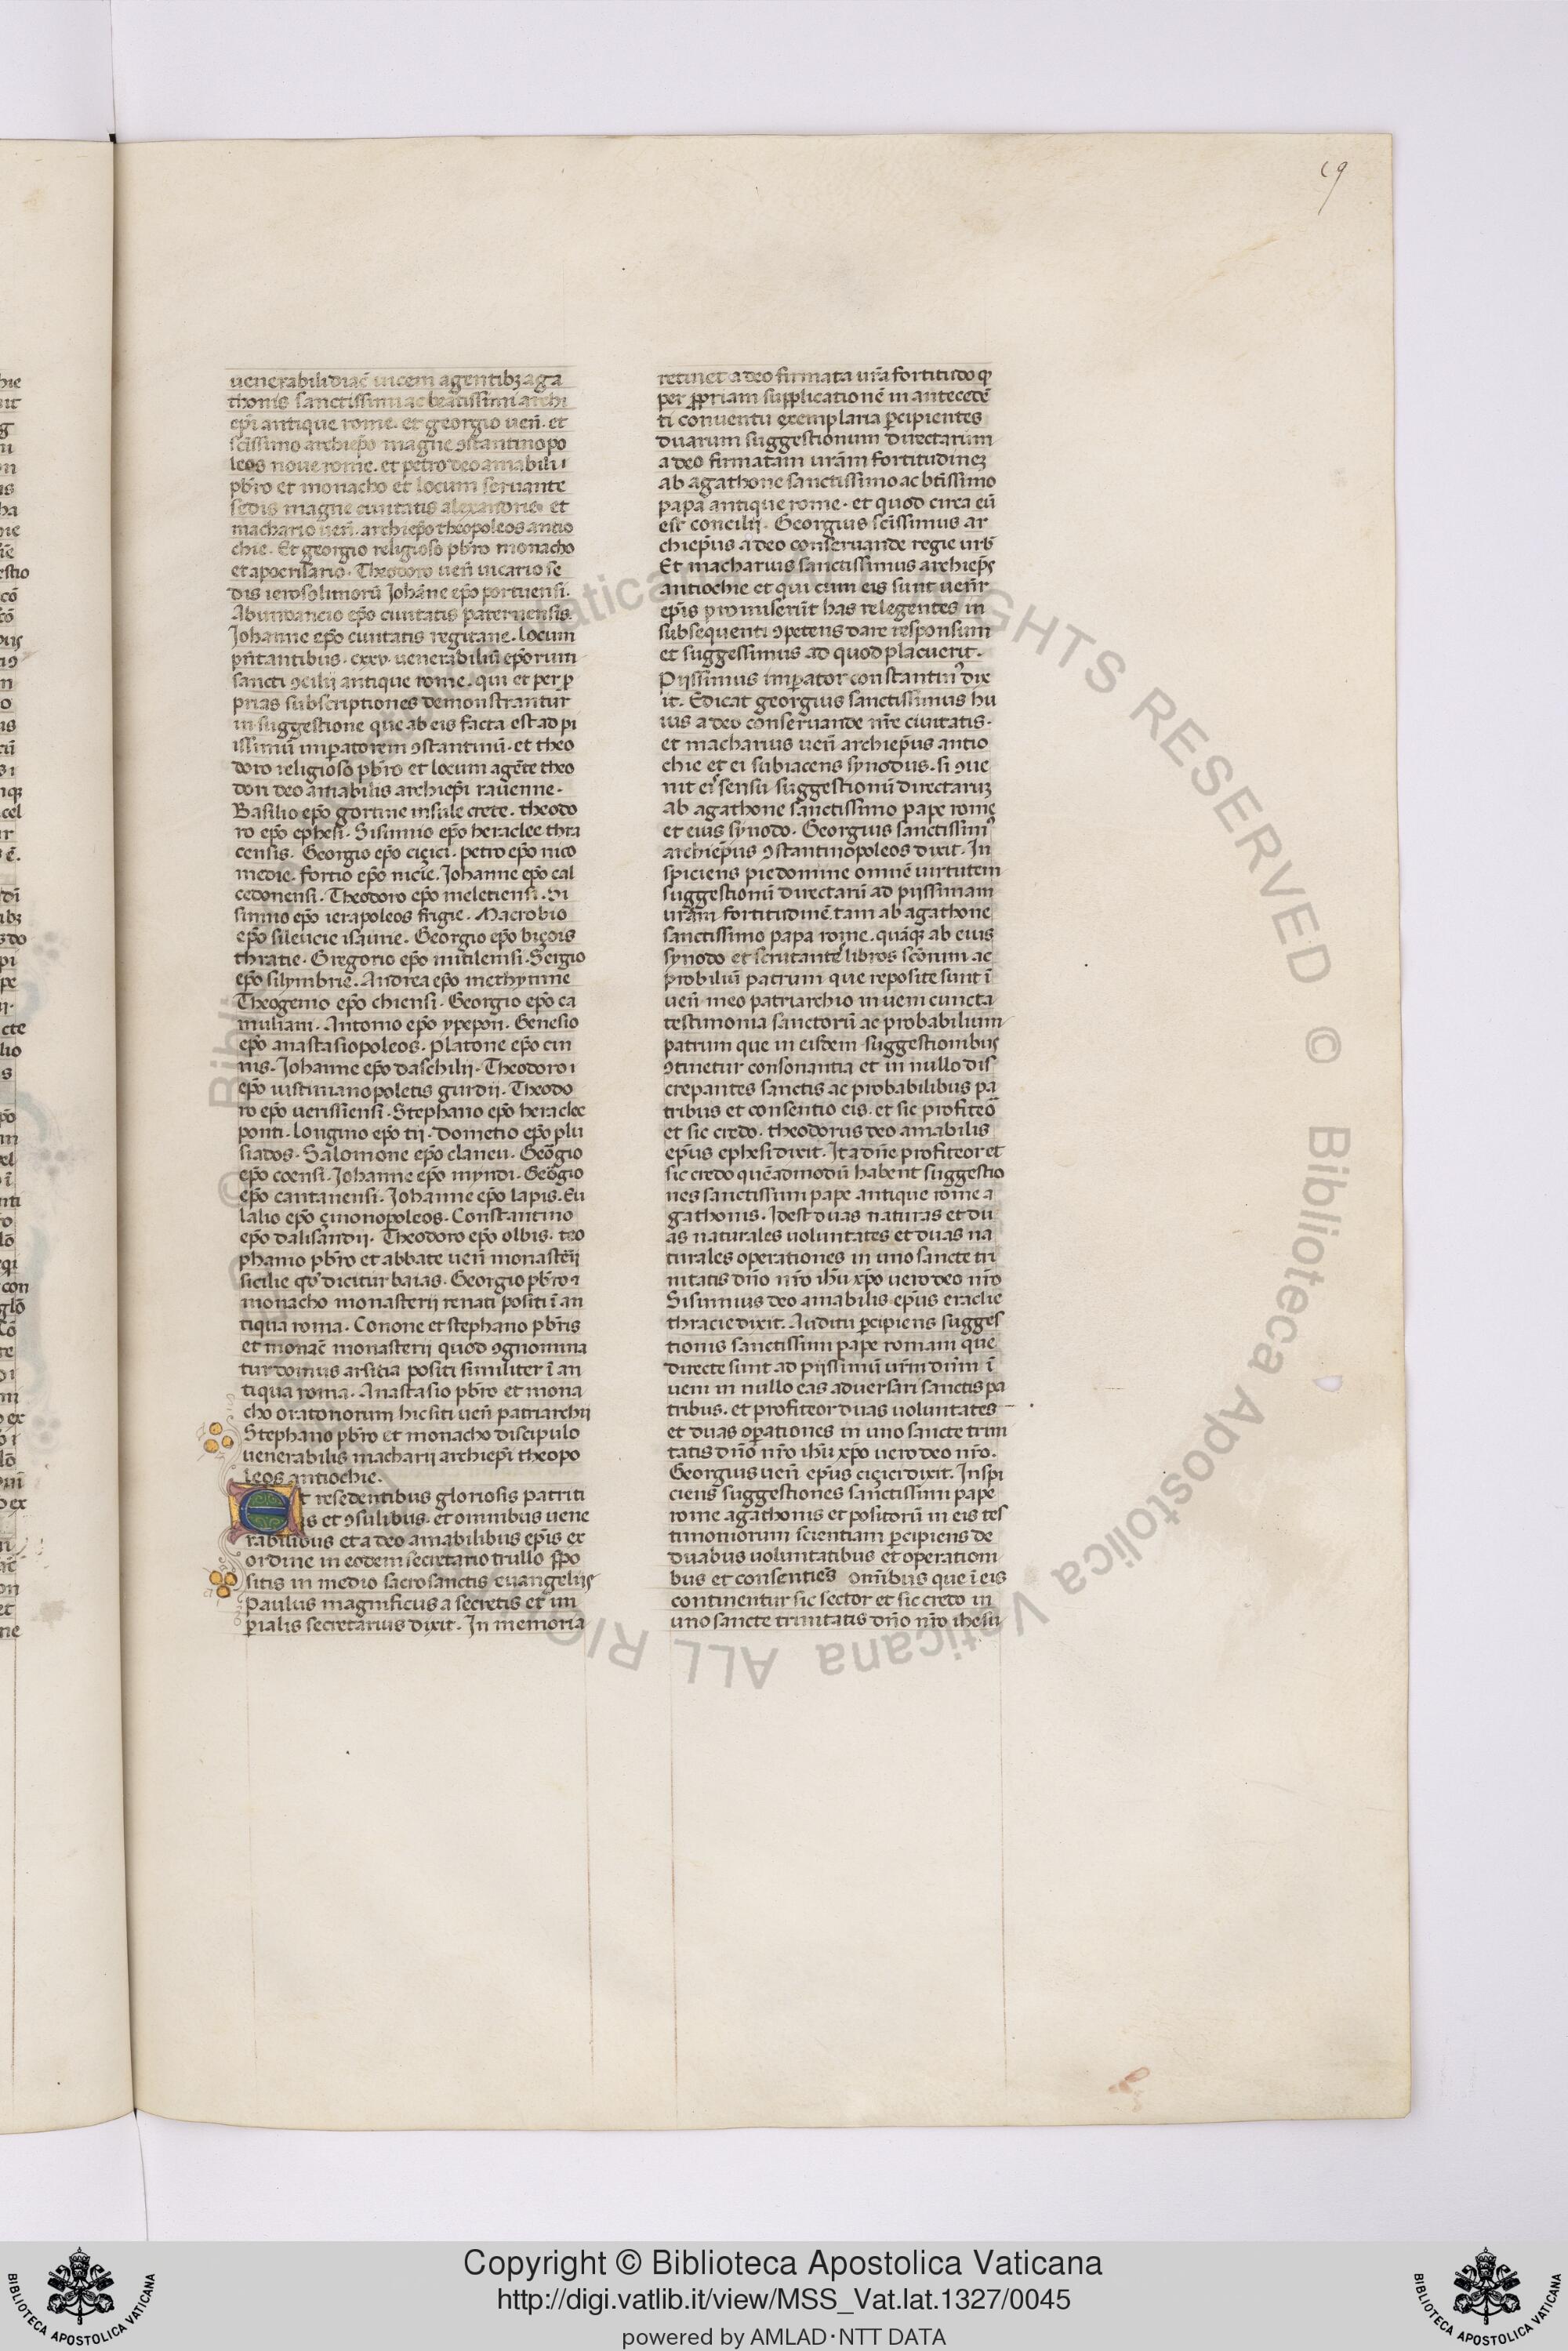 19
uenerabili diac̄ uicem agentibꝫ aga
thonis sanctissimi ac beatissimi archi
ep̄i antique rome. et georgio ueñ. et
sc̄issimo archiep̄o magne ꝯstantinopo
leos noue rome. et petro deo amabili
pb̄ro et monacho et locum seruante
sedis magne ciuitatis alexandrie et
machario ueñ. archiep̄o theopoleos antio
chie. Et georgio religioso pb̄ro monacho
et apocrisario. Theodoro ueñ uicario se
dis ierosolimorū Johāne ep̄o portuensi.
Abundancio ep̄o ciuitatis paternensis.
Johanne ep̄o ciuitatis regitane. locum
pñtantibus. cxxv. uenerabiliū ep̄orum
sancti ꝯcilij antique rome. qui et per ꝓ
prias subscriptiones demonstrantur
in suggestione que ab eis facta est ad pi
issimū imꝑatorem ꝯstantinū. et theo
doro religioso pb̄ro et locum agēte theo
dori deo amabilis archiep̄i rauenne.
Basilio ep̄o gortine insule crete. theodo
ro ep̄o ephesi. Sisinnio ep̄o heraclee thra
censis. Georgio ep̄o ciçici. petro ep̄o nico
medie. fortio ep̄o nicie. Johanne ep̄o cal
cedonensi. Theodoro ep̄o meletiensi. Si
sinnio ep̄o ierapoleos frigie. Macrobio
ep̄o sileucie isaurie. Georgio ep̄o biçois
thratie. Gregorio ep̄o mitilensi. Sergio
ep̄o silymbrie. Andrea ep̄o methymne
Theogenio ep̄o chiensi. Georgio ep̄o ca
muliani. Antonio ep̄o ypepon. Genesio
ep̄o anastasiopoleos. Platone ep̄o cin
nis. Johanne ep̄o daschilij. Theodoro
ep̄o iustinianopoletis gurdij. Theodo
ro ep̄o uerissiensi. Stephano ep̄o heraclee
ponti. longino ep̄o tij. Dometio ep̄o plu
siados. Salomone ep̄o claneu. Geōgio
ep̄o coensi. Johanne ep̄o myndi. Geōgio
ep̄o cantanensi. Johanne ep̄o lapis. Eu
lalio ep̄o çinonopoleos. Constantino
ep̄o dalisandij. Theodoro ep̄o olbis. teo
phanio pb̄ro et abbate ueñ monasterij
sicilie qd̄ dicitur baias. Georgio pb̄ro ⁊
monacho monasterij renati positi ī an
tiqua roma. Conone et stephano pb̄ris
et monac̄ monasterij quod ꝯgnomina
tur domus arsitia positi similiter ī an
tiqua roma. Anastasio pb̄ro et mona
cho oratoriorum hic siti ueñ patriarchij
Stephano pb̄ro et monacho discipulo
uenerabilis macharij archiep̄i theopo
leos antiochie.
Et resedentibus gloriosis patriti
is et ꝯsulibus. et omnibus uene
rabilibus et a deo amabilibus ep̄is ex
ordine in eodem secretario trullo ꝓpo
sitis in medio sacrosanctis euangelijs
Paulus magnificus a secretis et im
ꝑialis secretarius dixit. In memoria
retinet a deo firmata ur̄a fortitudo ꝙ
per ꝓpriam supplicationē in antecedē
ti conuentu exemplaria ꝑcipientes
duarum suggestionum directarum
a deo firmatam ur̄am fortitudineꝫ
ab agathone sanctissimo ac btīssimo
papa antique rome. et quod circa eū
est concilij. Georgius sc̄issimus ar
chiep̄us a deo conseruande regie urb̄
Et macharius sanctissimus archiep̄s
antiochie et qui cum eis sunt uenr̄
ep̄is ꝓmiserūt has relegentes in
subsequenti ꝯpetens dare responsum
et suggessimus ad quod placuerit.
Pijssimus imꝑator constantin⁹ dix
it. Edicat georgius sanctissimus hu
ius a deo conseruande nr̄e ciuitatis.
et macharius ueñ archiep̄us antio
chie et ei subiacens synodus. si ꝯue
nit ei sensu suggestionū directaruꝫ
ab agathone sanctissimo pape rome
et eius synodo. Georgius sanctissim⁹
archiep̄us ꝯstantinopoleos dixit. In
spiciens pie domine omnē uirtutem
suggestionū directarū ad pijssimam
ur̄am fortitudinē. tam ab agathone
sanctissimo papa rome. quāqꝫ ab eius
synodo et scrutante libros sc̄orum ac
probiliū patrum que reposite sunt ī
ueñ meo patriarchio inueni cuncta
testimonia sanctorū ac probabilium
patrum que in eisdem suggestionibus
ꝯtinetur consonantia et in nullo dis
crepantes sanctis ac probabilibus pa
tribus et consentio eis. et sic profiteō
et sic credo. theodorus deo amabilis
ep̄us ephesi dixit. Ita dñe profiteor et
sic credo quēadmodū habent suggestio
nes sanctissimi pape antique rome a
gathonis. Idest duas naturas et du
as naturales uoluntates et duas na
turales operationes in uno sancte tri
nitatis dño nr̄o ihū xp̄o uero deo nr̄o
Sisinnius deo amabilis ep̄us eraclie
thracie dixit. Auditu ꝑcipiens sugges
tionis sanctissimi pape romani que
directe sunt ad pijssimū ur̄m dn̄m ī
ueni in nullo eas aduersari sanctis pa
tribus. et profiteor duas uoluntates
et duas oꝑationes in uno sancte trini
tatis dño nr̄o ihū xp̄o uero deo nr̄o.
Georgius ueñ ep̄us ciçici dixit. Inspi
ciens suggestiones sanctissimi pape
rome agathonis et positorū in eis tes
timoniorum scientiam ꝑcipiens de
duabus uoluntatibus et operationi
bus et consentiēs omībus que ī eis
continentur sic sector et sic credo in
uno sancte trinitatis dño nr̄o ihesu
© Biblioteca Apostolica Vaticana ALL RIGHTS RESERVED © Biblioteca Apostolica Vaticana ALL RIG
Copyright © Biblioteca Apostolica Vaticana
http://digi.vatlib.it/view/MSS_Vat.lat.1327/0045
powered by AMLAD·NTT DATA
BIBLIOTECA APOSTOLICA VATICANA
BIBLIOTECA APOSTOLICA VATICANA